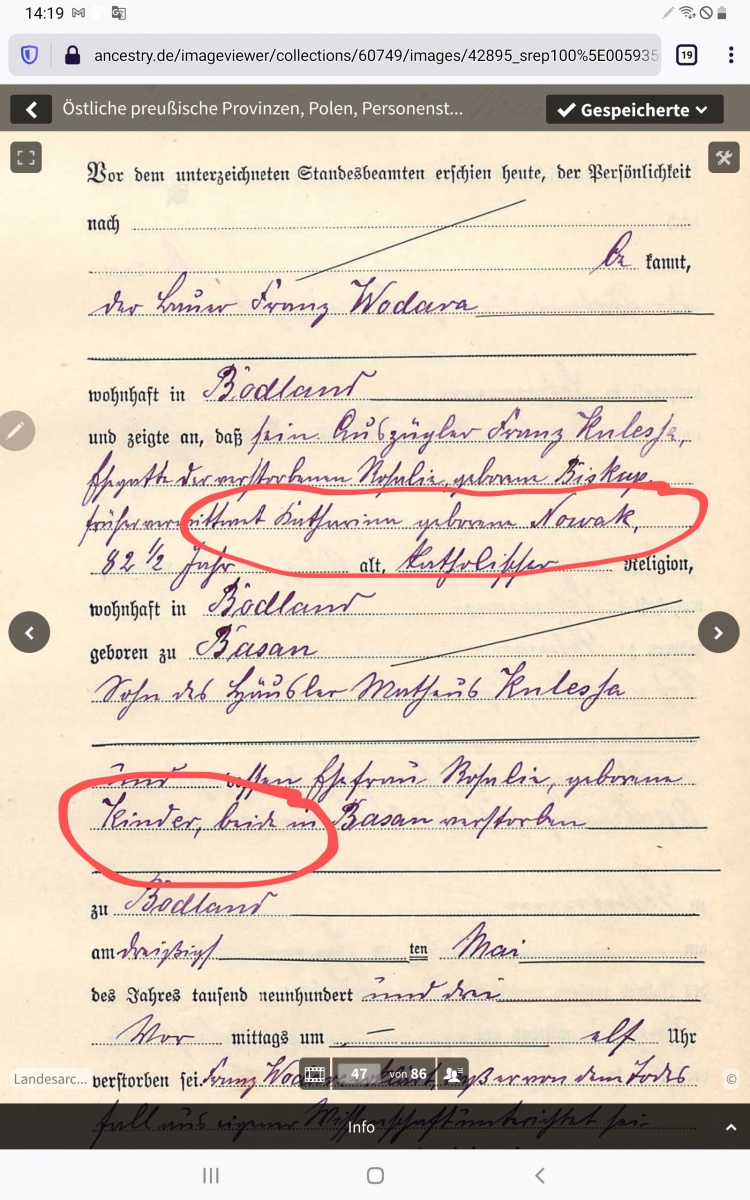 14:19
19
ancestry.de/imageviewer/collections/60749/images/42895_srep100%5E005935
Östliche preußische Provinzen, Polen, Personenst...
Gespeicherte
Vor dem unterzeichneten Standesbeamten erschien heute, der Persönlichkeit
nach
be kannt,
der Bauer Franz Wodara
wohnhaft in Bodland
und zeigte an, daß sein Auszügler Franz Kulessa,
Ehegatte der verstorbenen Rosalie, geborene Biskup,
früher verwittwet Katharina geborene Nowak,
82 1/2 Jahr alt, katholischer Religion,
wohnhaft in Bodland
geboren zu Basan
Sohn des Häusler Matheus Kulessa
und dessen Ehefrau Rosalie, geborene
Kinder, beide in Basan verstorben
zu Bodland
am dreißigs ten Mai
des Jahres tausend neunhundert und drei
Vor mittags um elf Uhr
Landesarc...
47 von 86
©
verstorben sei. Franz daß er von dem Todes
Info
fall aus eigener Wissenschaft unterrichtet sei.